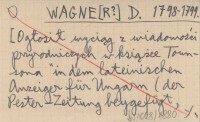 WAGNE[R?] D. 1798-1799.
[Ogłosił wyciąg z wiadomości
przyrodniczych w książce Town-
sona "in dem lateinischen
Anzeiger für Ungarn (der
Pester Zeitung beygefügt.